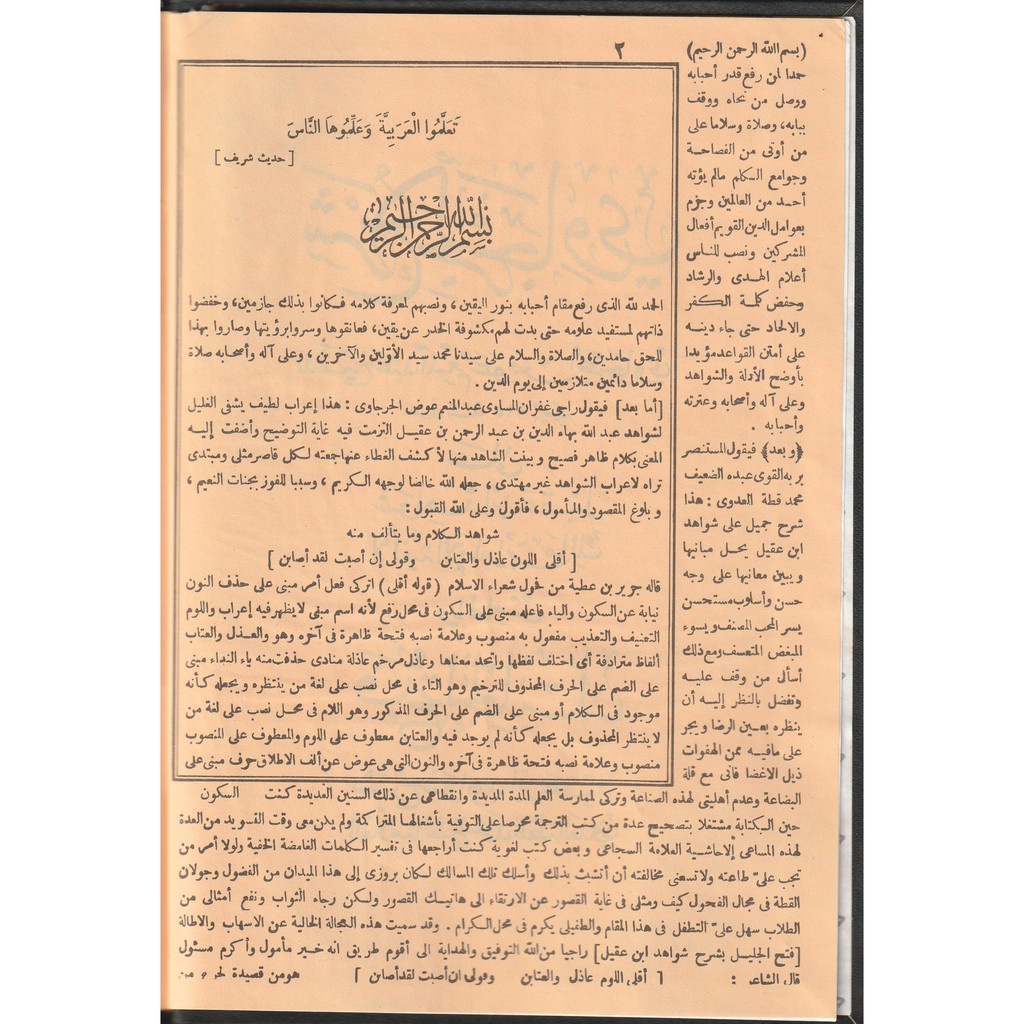 ٢
تَعَلَّمُوا الْعَرَبِيَّةَ وَعَلِّمُوهَا النَّاسَ
[ حديث شريف ]
بسم الله الرحمن الرحيم
الحمد لله الذى رفع مقام أحبابه بنور اليقين ، ونصبهم لمعرفة كلامه فكانوا بذلك جازمين، وخفضوا
ذاتهم لمستفيد علومه حتى بدت لهم مكشوفة الخدر عن يقين، فعانقوها وسروا برؤيتها وصاروا بهذا
للحق حامدين، والصلاة والسلام على سيدنا محمد سيد الأولين والآخرين ، وعلى آله وأصحابه صلاة
وسلاما دائمين متلازمين إلى يوم الدين .
[أما بعد] فيقول راجى غفران المساوى عبد المنعم عوض الجرجاوى : هذا إعراب لطيف يشفى الغليل
لشواهد عبد الله بهاء الدين بن عبد الرحمن بن عقيل التزمت فيه غاية التوضيح وأضفت إليه
المعنى بكلام ظاهر فصيح وبينت الشاهد منها لأكشف الغطاء عنها جعته لكل قاصر مثلى ومبتدى
تراه لاعراب الشواهد غير مهتدى ، جعله الله خالصا لوجهه الكريم ، وسببا للفوز بجنات النعيم ،
وبلوغ المقصود والمأمول ، فأقول وعلى الله القبول :
شواهد الكلام وما يتألف منه
[ أقلى اللون عاذل والعتابن وقولى إن أصبت لقد أصابن ]
قاله جرير بن عطية من فحول شعراء الاسلام ( قوله أقلى ) اتركى فعل أمر مبنى على حذف النون
نيابة عن السكون والياء فاعله مبنى على السكون فى محل رفع لأنه اسم مبنى لا يظهر فيه إعراب واللوم
التعنيف والتعذيب مفعول به منصوب وعلامة نصبه فتحة ظاهرة فى آخره وهو والعذل والعتاب
ألفاظ مترادفة أى اختلف لفظها واتحد معناها وعاذل مرخم عاذلة منادى حذفت منه ياء النداء مبنى
على الضم على الحرف المحذوف للترخيم وهو التاء فى محل نصب على لغة من ينتظره ويجعله كأنه
موجود فى الكلام أو مبنى على الضم على الحرف المذكور وهو اللام فى محل نصب على لغة من
لا ينتظر المحذوف بل يجعله كأنه لم يوجد فيه والعتابن معطوف على اللوم والمعطوف على المنصوب
منصوب وعلامة نصبه فتحة ظاهرة فى آخره والنون التى هى عوض عن ألف الاطلاق حرف مبنى على
السكون
(بسم الله الرحمن الرحيم)
حمدا لمن رفع قدر أحبابه
ووصل من نحاه ووقف
ببابه، وصلاة وسلاما على
من أوتى من الفصاحة
وجوامع الكلم مالم يؤته
أحد من العالمين وجزم
بعوامل الدين القويم أفعال
المشركين ونصب للناس
أعلام الهدى والرشاد
وخفض كلمة الكفر
والالحاد حتى جاء دينه
على أمتن القواعد مؤيدا
بأوضح الأدلة والشواهد
وعلى آله وأصحابه وعترته
وأحبابه .
﴿وبعد﴾ فيقول المستنصر
بربه القوى عبده الضعيف
محمد قطة العدوى : هذا
شرح جميل على شواهد
ابن عقيل يحل مبانيها
ويبين معانيها على وجه
حسن وأسلوب مستحسن
يسر المحب المصنف ويسوء
المبغض المتعسف ومع ذلك
أسأل من وقف عليه
وتفضل بالنظر إليه أن
ينظره بعين الرضا ويجر
على مافيه ممن الهفوات
ذيل الاغضا فانى مع قلة
البضاعة وعدم أهليتى لهذه الصناعة وتركى لممارسة العلم المدة المديدة وانقطاعى عن ذلك السنين العديدة كنت
حين الكتابة مشتغلا بتصحيح عدة من كتب الترجمة محرصا على التوفية بأشغالها المتراكمة ولم يكن معى وقت التسويد من العدة
لهذه المساعى إلا حاشية العلامة السجاعى وبعض كتب لغوية كنت أراجعها فى تفسير الكلمات الغامضة الخفية ولولا أمر من
تجب علىّ طاعته ولا تسعنى مخالفته أن أتشبث بذلك وأسلك تلك المسالك لكان بروزى إلى هذا الميدان من الفضول وجولان
القطة فى مجال الفحول كيف ومثلى فى غاية القصور عن الارتقاء الى هاتيك القصور ولكن رجاء الثواب ونفع أمثالى من
الطلاب سهل علىّ التطفل فى هذا المقام والطفيلى يكرم فى محل الكرام . وقد سميت هذه العجالة الخالية عن الاسهاب والاطالة
[فتح الجليل بشرح شواهد ابن عقيل] راجيا من الله التوفيق والهداية الى أقوم طريق انه خير مأمول وأكرم مسئول
قال الشاعر : [ أقلى اللوم عاذل والعتابن وقولى ان أصبت لقد أصابن ] هو من قصيدة من